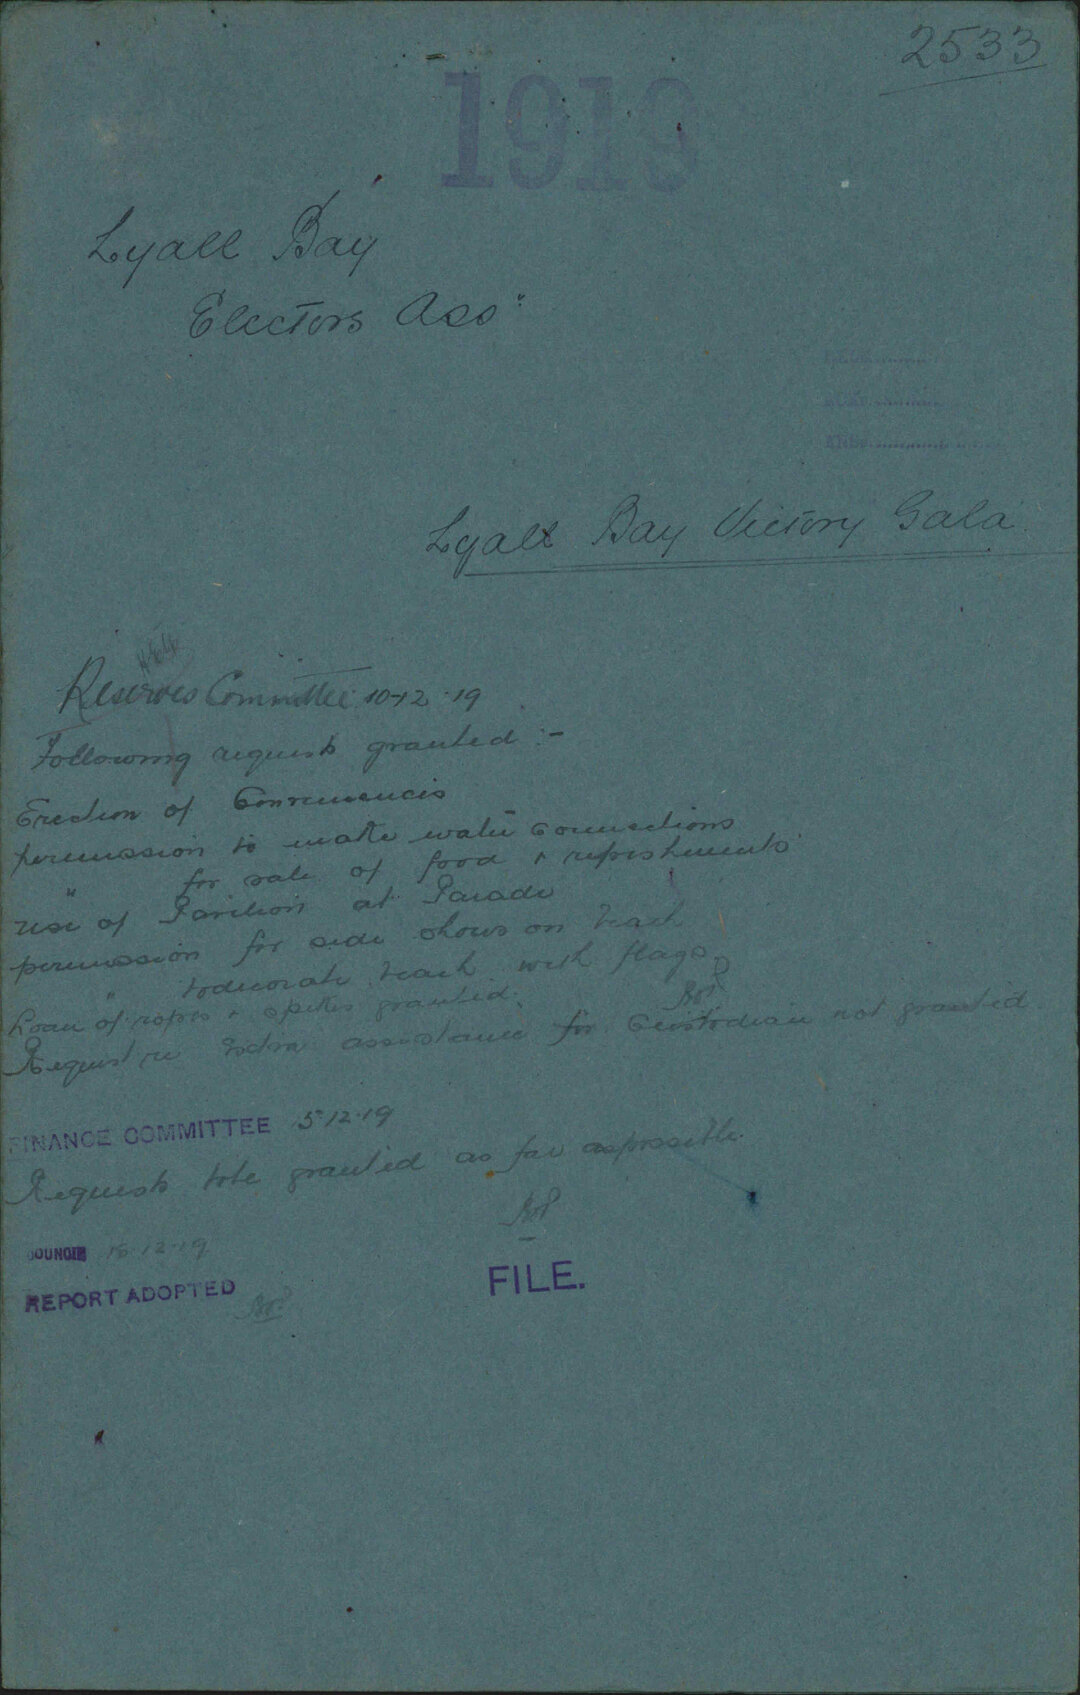 2533
1919
Lyall Bay
Electors Assn
Lyall Bay Victory Gala
Reserves Committee 10-12-19
Following requests granted :-
Erection of Conveniences
permission to make water connections
" for sale of food & refreshments
use of Pavilion at Parade
permission for side shows on beach
" to decorate beach with flags
Loan of ropes & spikes granted.
Request re Extra assistance for Custodian not granted
FINANCE COMMITTEE 5-12-19
Requests to be granted as far as possible.
COUNCIL 18-12-19
REPORT ADOPTED
FILE.